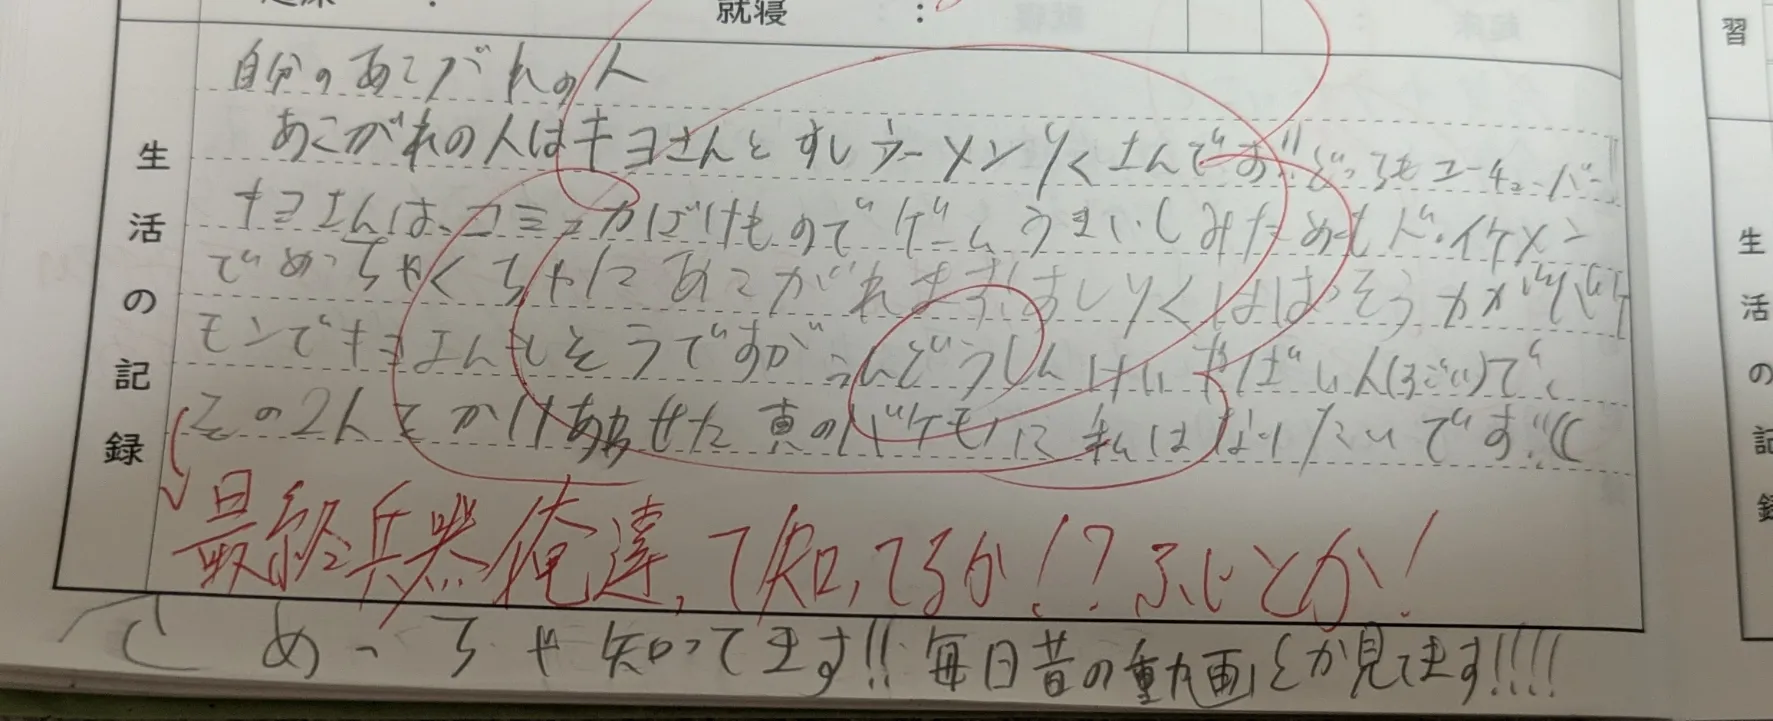 就寝 :
習
生活の記録
自分のあこがれの人
あこがれの人はキヨさんとすしラーメンりくさんです!!どっちもユーチューバー
キヨさんは、コミュ力ばけものでゲームうまいししみためもド.イケメン
でめっちゃくちゃにあこがれますすしりくははっそう力がバケ
モンでキヨさんもそうですがうんどうしんけいやばい人(すごい)で、
その2人をかけあわせた真のバケモノに私はなりたいです!!
最終兵器俺達って知ってるか!?ふじとか!
めっちゃ知ってます!!毎日昔の動画とか見てます!!!!
生活の記録